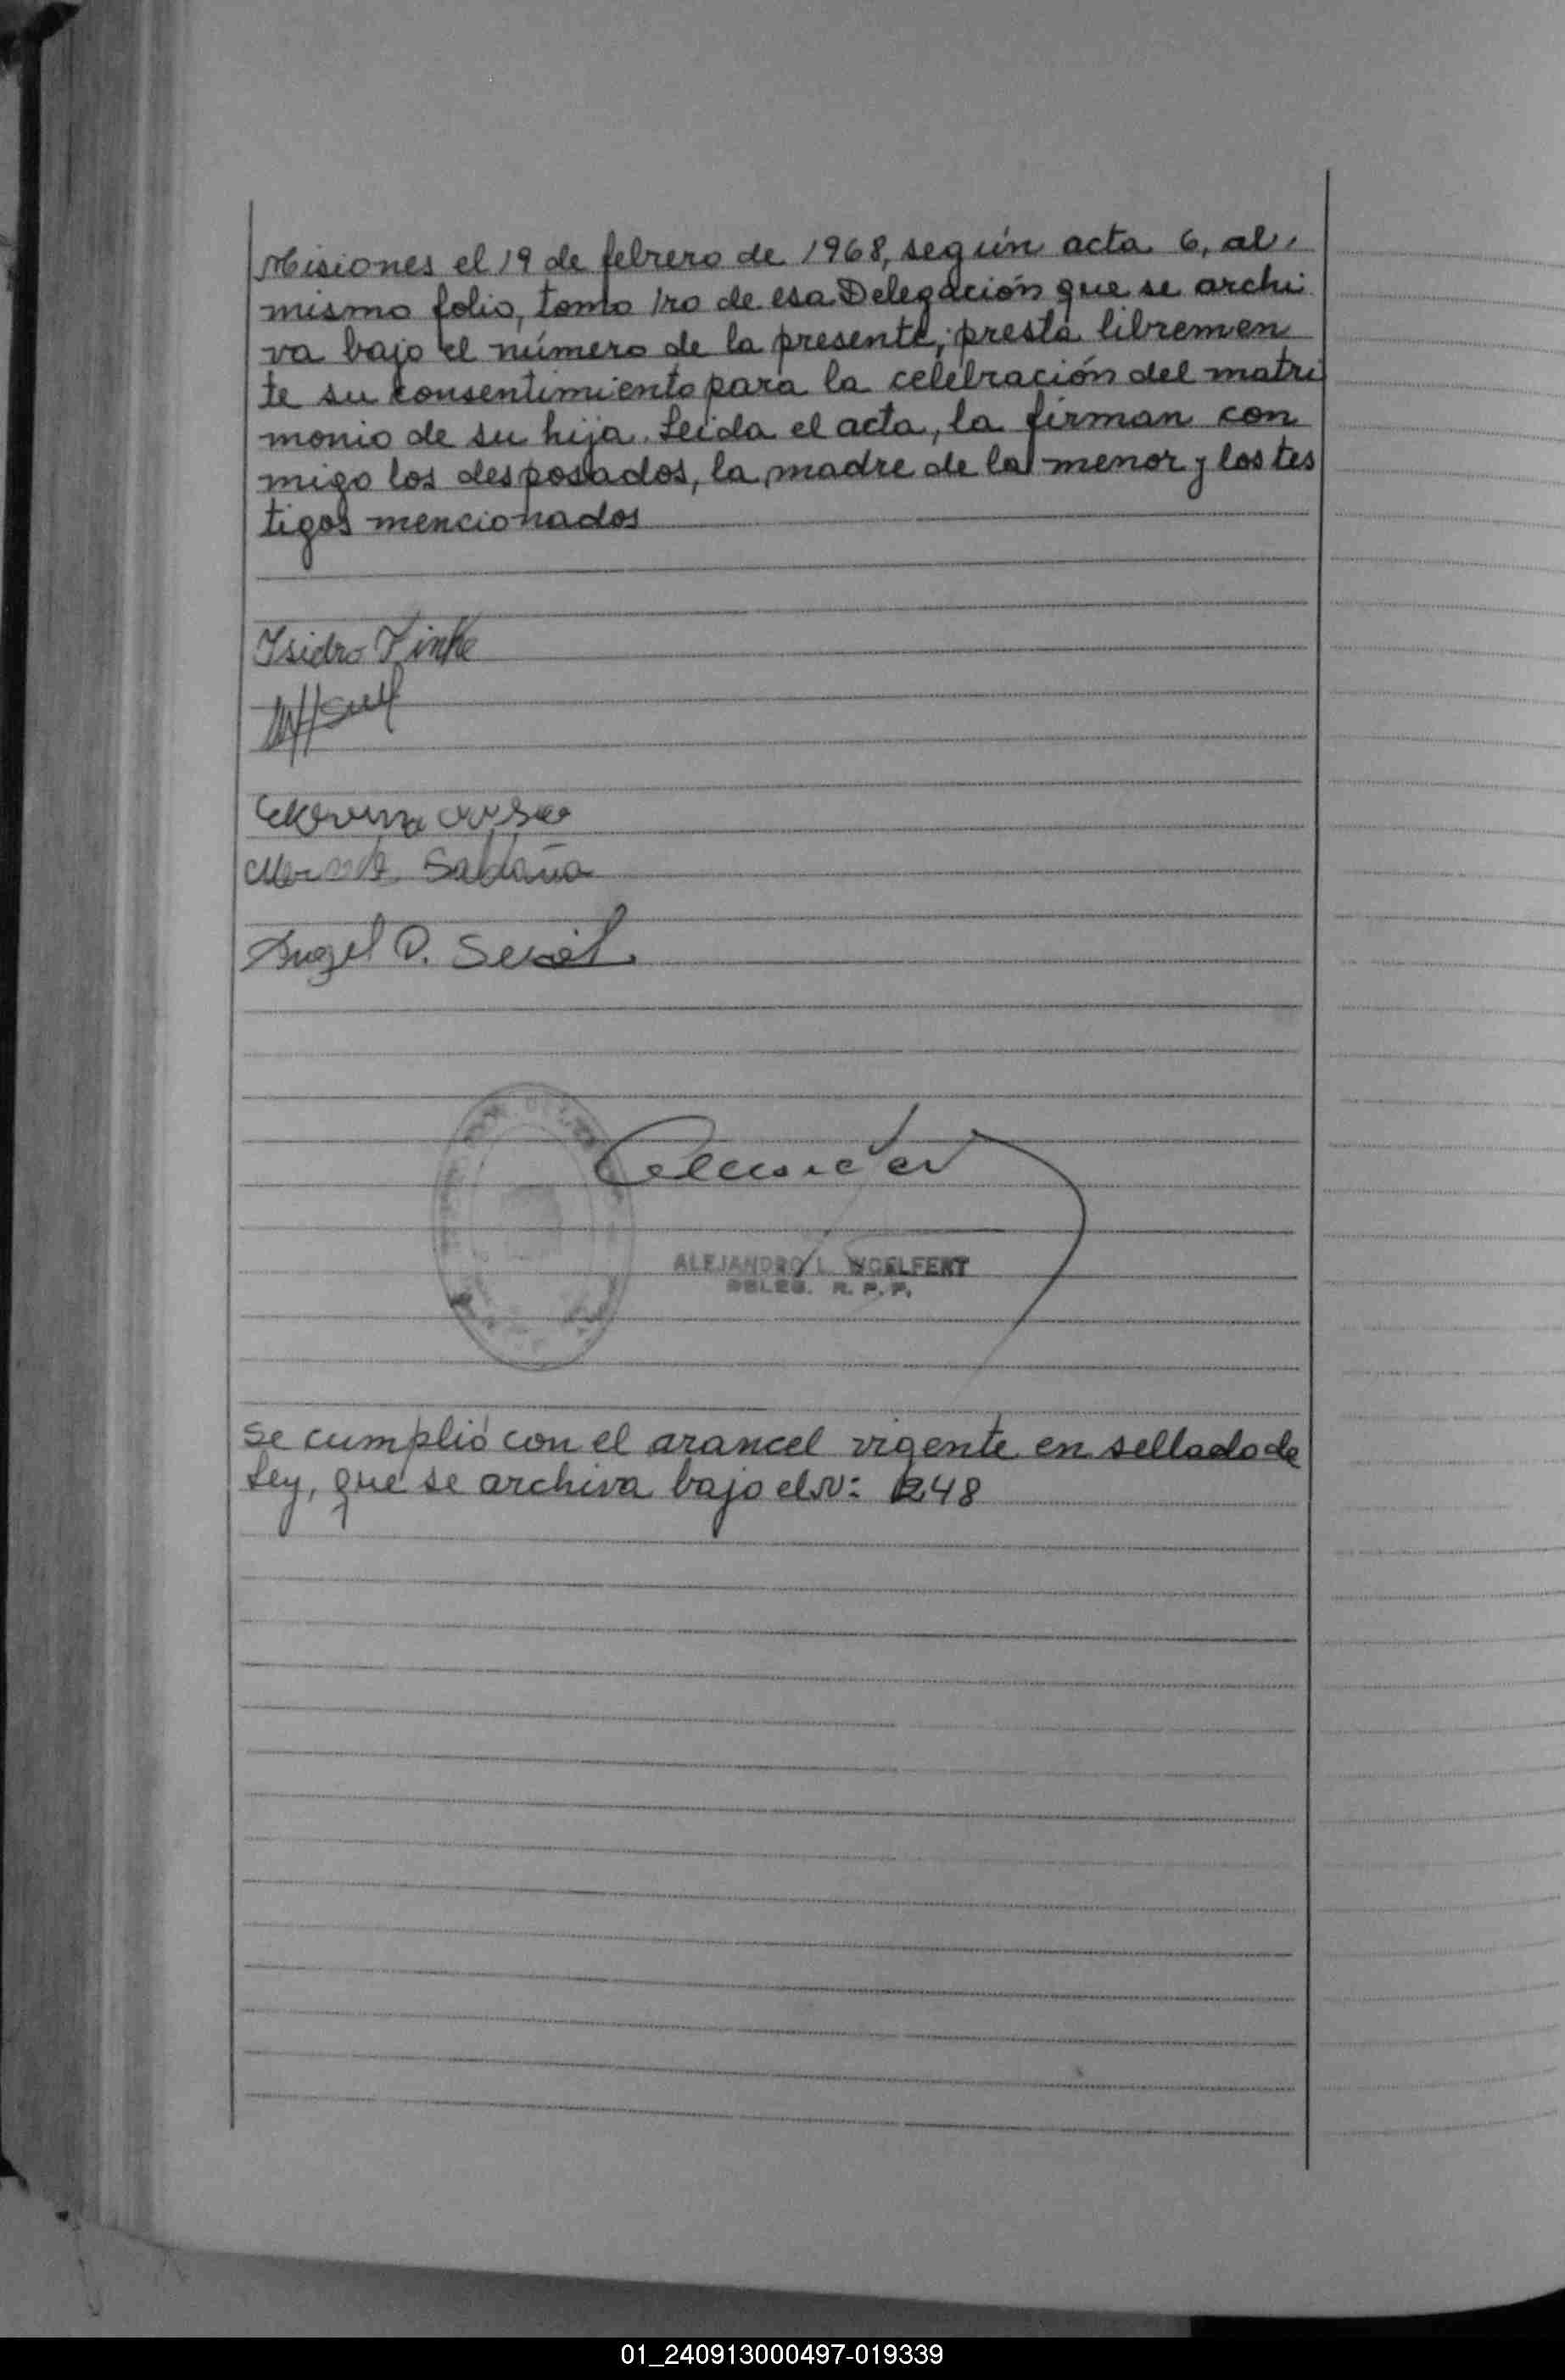 Misiones el 19 de febrero de 1968, según acta 6, al
mismo folio, tomo 1ro de esa Delegación que se archi
va bajo el número de la presente; presta libremen
te su consentimiento para la celebración del matri
monio de su hija. Leida el acta, la firman con
migo los desposados, la madre de la menor y los tes
tigos mencionados
Isidro Finke
Saldaña
Angel D.
ALEJANDRO L. WOELFERT
DELEG. R. P. P.
se cumplió con el arancel vigente en sellado de
Ley, que se archiva bajo el N: 248
01_240913000497-019339